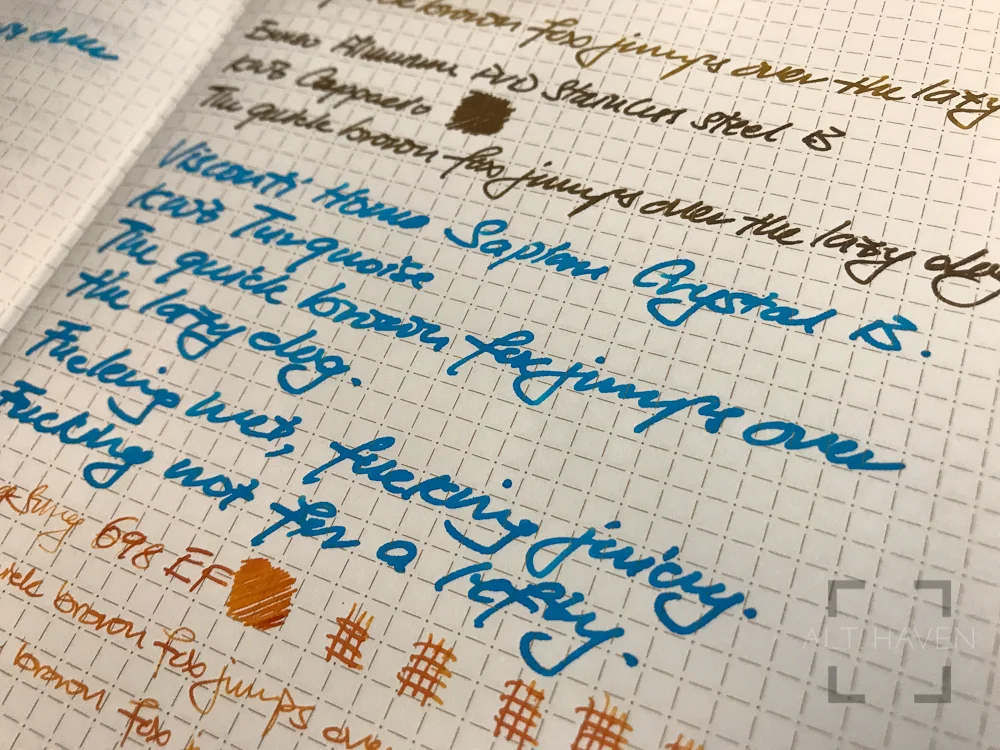 brown fox jumps over the lazy
PVD Stainless Steel B
KWZ Cappuccio
The quick brown fox jumps over the lazy dog
Visconti Homo Sapiens Crystal B.
KWZ Turquoise
The quick brown fox jumps over
the lazy dog.
Fucking wet, fucking juicy.
Fucking not for a lefty.
698 EF
brown fox jumps over
brown fox
ALT HAVEN